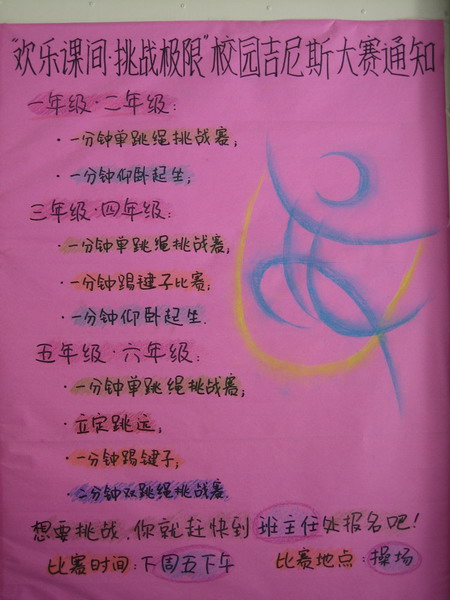 "欢乐课间·挑战极限"校园吉尼斯大赛通知
一年级·二年级:
·一分钟单跳绳挑战赛;
·一分钟仰卧起生;
三年级·四年级:
·一分钟单跳绳挑战赛;
·一分钟踢毽子比赛;
·一分钟仰卧起生.
五年级·六年级:
·一分钟单跳绳挑战赛;
·立定跳远;
·一分钟踢毽子;
·二分钟双跳绳挑战赛.
想要挑战,你就赶快到班主任处报名吧!
比赛时间:下周五下午 比赛地点:操场